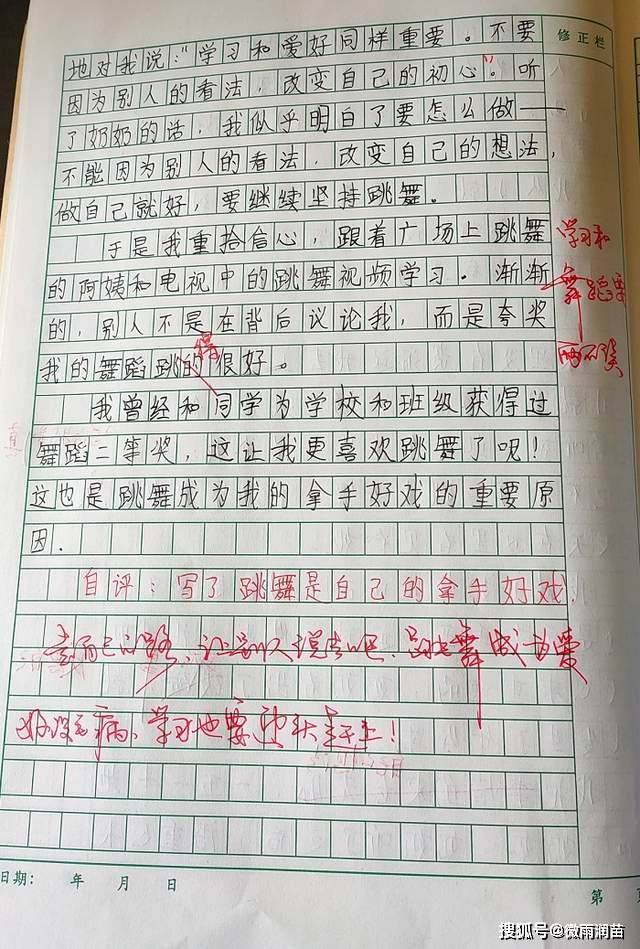 修正栏
地对我说："学习和爱好同样重要。不要
因为别人的看法，改变自己的初心"。听
了奶奶的话，我似乎明白了要怎么做——
不能因为别人的看法，改变自己的想法，
做自己就好，要继续坚持跳舞。
于是我重拾信心，跟着广场上跳舞
的阿姨和电视中的跳舞视频学习。渐渐
的，别人不是在背后议论我，而是夸奖
得
我的舞蹈跳的很好。
学习和
舞蹈要
两不误
我曾经和同学为学校和班级获得过
舞蹈二等奖，这让我更喜欢跳舞了呢！
这也是跳舞成为我的拿手好戏的重要原
因.
自评：写了跳舞是自己的拿手好戏.
走自己的路，让别人说去吧，舞成为爱
好没毛病，学习也要迎头赶上！
日期： 年 月 日
第 页
搜狐号@微雨润苗